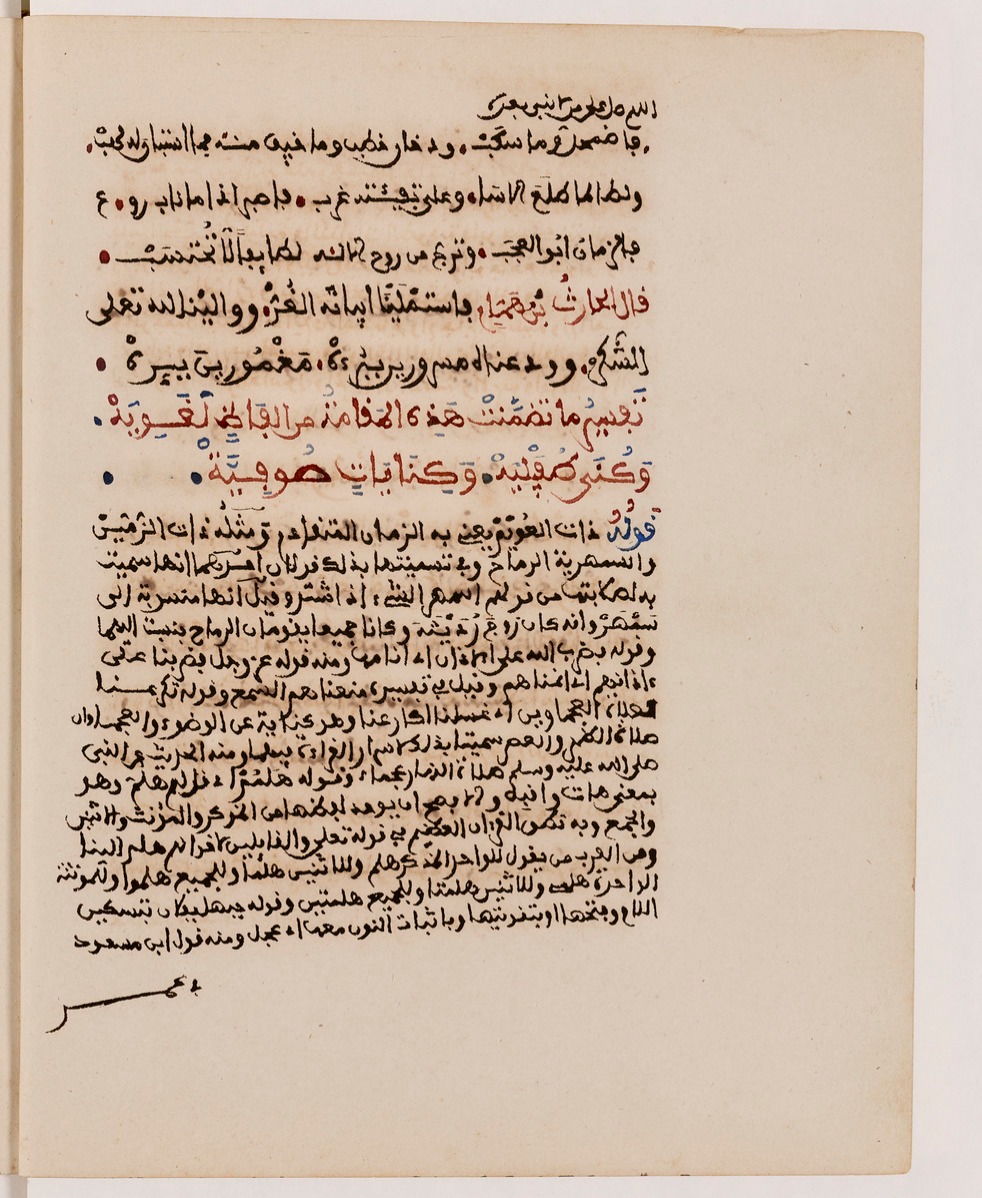 اللهم صل على من لا نبي بعده
فاضمحل وما سكب. ودخان خطب وما خيف منه فما استبان له لهب.
ولطالما طلع الاسا. وعلى تفيئته غرب. فاصبر اذا ما ناب رو. ع
فالزمان ابو العجب. وترج من روح الاله لطايفا لا تحتسب.
قال الحارث بن همام فاستملينا ابياته الغر. ووالينا لله تعلى
الشكر. وودعناه مسرورين ببرءه. مغمورين ببره.
تفسير ما تضمنت هذه المقامة من الفاظ لغوية.
وكنى طفيلية. وكنايات صوفية.
قوله ذات العويم يعني به الزمان المتقادم ومثله ذات الزمين
والسمهرية الرماح وفي تسميتها بذلك قولان احدهما انها سميت
به لصلابتها من قولهم اسمهر الشيء اذا اشتد وقيل انها منسوبة الى
سمهر وانه كان زوج ردينة وكانا جميعا يقومان الرماح بنسبت اليهما
وقوله فضرب الله على الاذان اي انامها ومنه قوله عز وجل فضربنا على
ءاذانهم اي انمناهم وقيل في تفسيره منعناهم السمع وقوله تكرعنا
لصلاة العجماوين اي غسلنا اكارعنا وهو كناية عن الوضوء والعجماوان
صلاة الظهر والعصر سميتا بذلك لاسرار القراءة فيهما ومنه الحديث عن النبي
صلى الله عليه وسلم صلاة النهار عجماء وقوله هلممنا اي قال لهم هلم وهو
بمعنى هات واقبل والاصح ان يوحد لفظها مع المذكر والمؤنث والاثنين
والجمع وبه نطق القرءان العظيم في قوله تعلى والقايلين لاخوانهم هلم الينا
ومن العرب من يقول للواحد المذكر هلم وللاثنين هلما وللجميع هلموا وللمونثة
الواحدة هلمي وللاثنين هلمتا وللجميع هلمتين وقوله حيهل يقال بتسكين
اللام وفتحها وبتنوينها وباثبات النون معها اي عجل ومنه قول ابن مسعود
في عمر